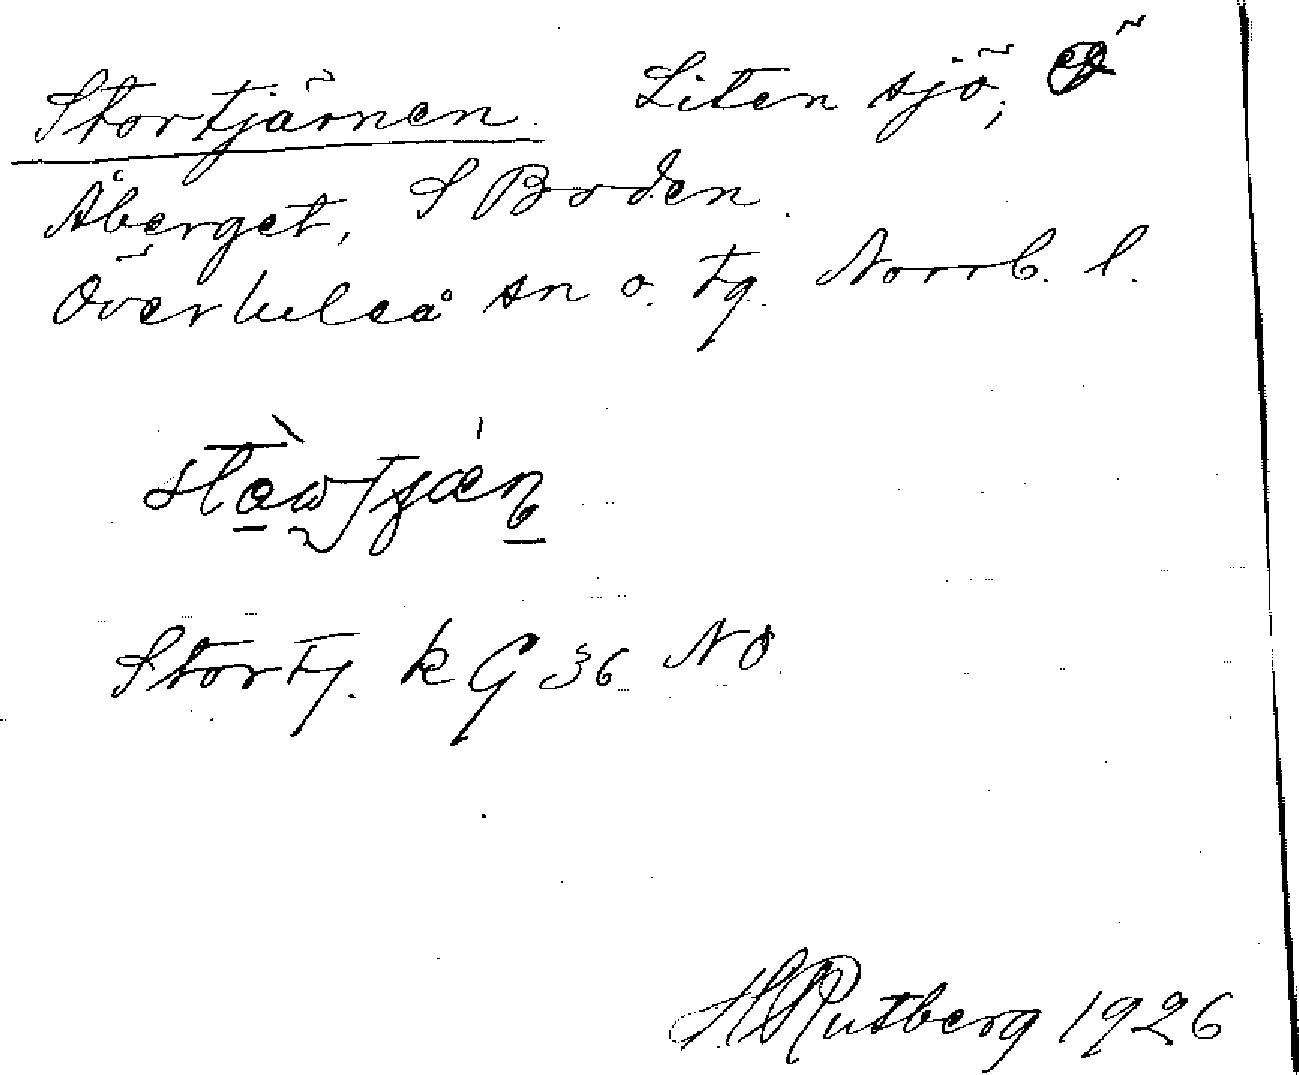 Stortjärnen. Liten sjö, Ö
Åberget, S Boden.
Överluleå sn o. tg. Norrb. l.
Stortj. k G 36 NO
H Rutberg 1926